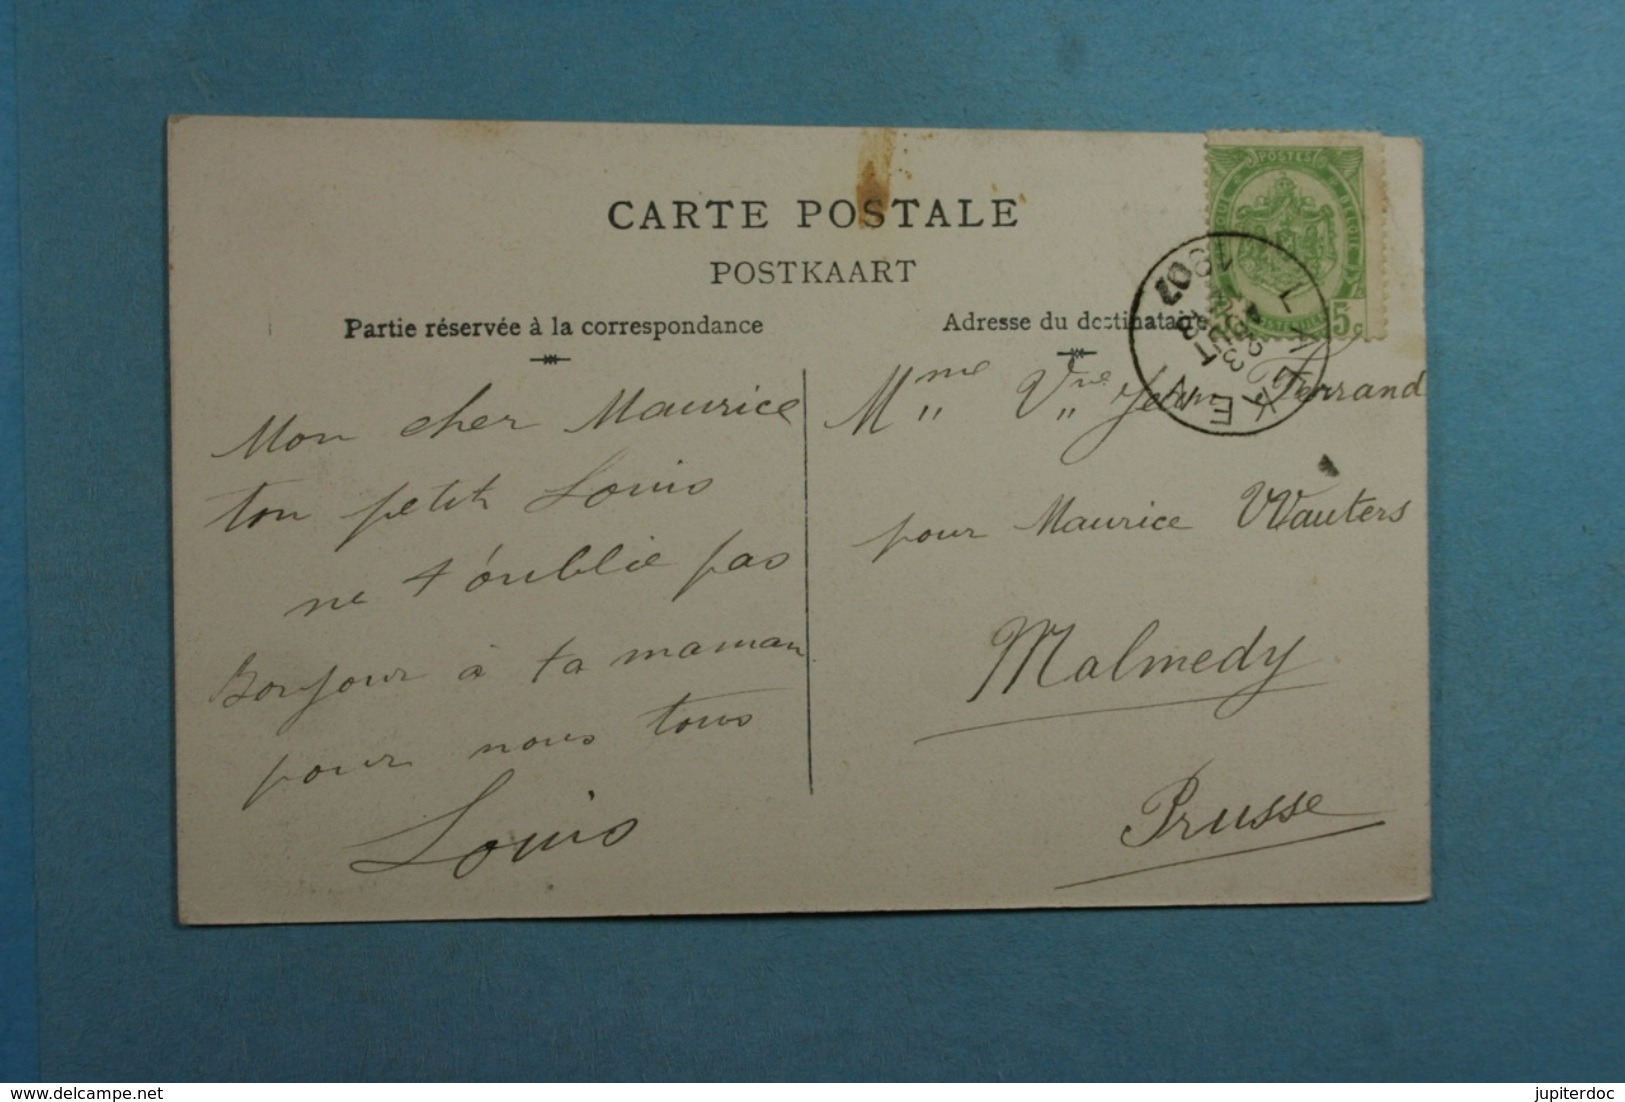 CARTE POSTALE
POSTKAART
Partie réservée à la correspondance
Adresse du destinataire
POSTES
5c
1907
Mon cher Maurice
ton petit Louis
ne t'oublie pas
Bonjour à ta maman
pour nous tous
Louis
Mme Vve Ferrand
pour Maurice Wauters
Malmedy
Prusse
www.delcampe.net
jupiterdoc